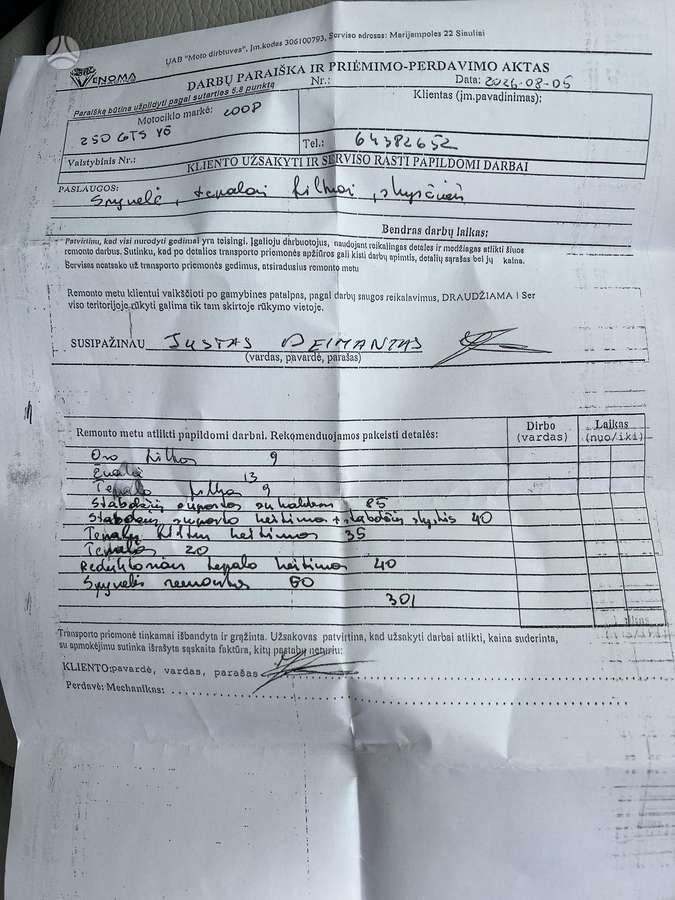 UAB "Moto dirbtuvės", Įm.kodas 306100793, Serviso adresas: Marijampolės 22 Šiauliai
VENOMA
DARBŲ PARAIŠKA IR PRIĖMIMO-PERDAVIMO AKTAS
Paraišką būtina užpildyti pagal sutarties 5.8 punktą
Nr.:
Data: 2026-08-05
Motociklo markė: 2008
250 GTS
Klientas (įm.pavadinimas):
Tel.: 64382652
Valstybinis Nr.:
KLIENTO UŽSAKYTI IR SERVISO RASTI PAPILDOMI DARBAI
PASLAUGOS:
Spynelė, tepalai filtrai, skysčiai
Bendras darbų laikas:
Patvirtinu, kad visi nurodyti gedimai yra teisingi. Įgalioju darbuotojus, naudojant reikalingas detales ir medžiagas atlikti šiuos
remonto darbus. Sutinku, kad po detalios transporto priemonės apžiūros gali kisti darbų apimtis, detalių sąrašas bei jų kaina.
Servisas neatsako už transporto priemonės gedimus, atsiradusius remonto metu
Remonto metu klientui vaikščioti po gamybines patalpas, pagal darbų saugos reikalavimus, DRAUDŽIAMA ! Ser
viso teritorijoje rūkyti galima tik tam skirtoje rūkymo vietoje.
SUSIPAŽINAU JUSTAS DEIMANTAS
(vardas, pavardė, parašas)
Remonto metu atlikti papildomi darbai. Rekomenduojamos pakeisti detalės:
Dirbo
(vardas)
Laikas
(nuo/iki)
Oro filtras 9
Žvakė 13
Tepalo filtras 9
Stabdžių suportas su kaladėm 85
Stabdžių suporto keitimas + stabdžių skystis 40
Tepalų filtrų keitimas 35
Tepalas 20
Reduktoriaus tepalo keitimas 40
Spynelės remontas 50
301
Transporto priemonė tinkamai išbandyta ir grąžinta. Užsakovas patvirtina, kad užsakyti darbai atlikti, kaina suderinta,
su apmokėjimu sutinka išrašyta sąskaita faktūra, kitų pastabų neturiu:
KLIENTO:pavardė, vardas, parašas
Perdavė: Mechanikas: